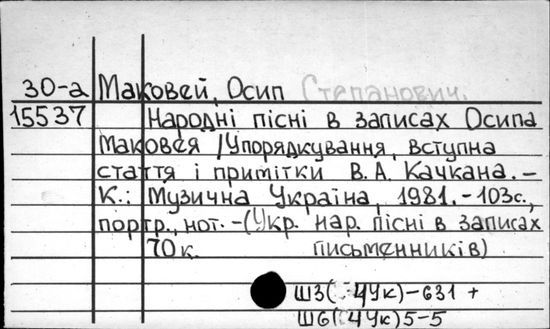 30-а Маковей, Осип Степанович.
15537 Народні пісні в записах Осипа
Маковея /Упорядкування, вступна
стаття і примітки В.А. Качкана.–
К.: Музична Україна, 1981.–103с.,
портр., нот.–(Укр. нар. пісні в записах
70к. письменників)
Ш3(4Ук)–631 +
Щ6(4Ук)5–5